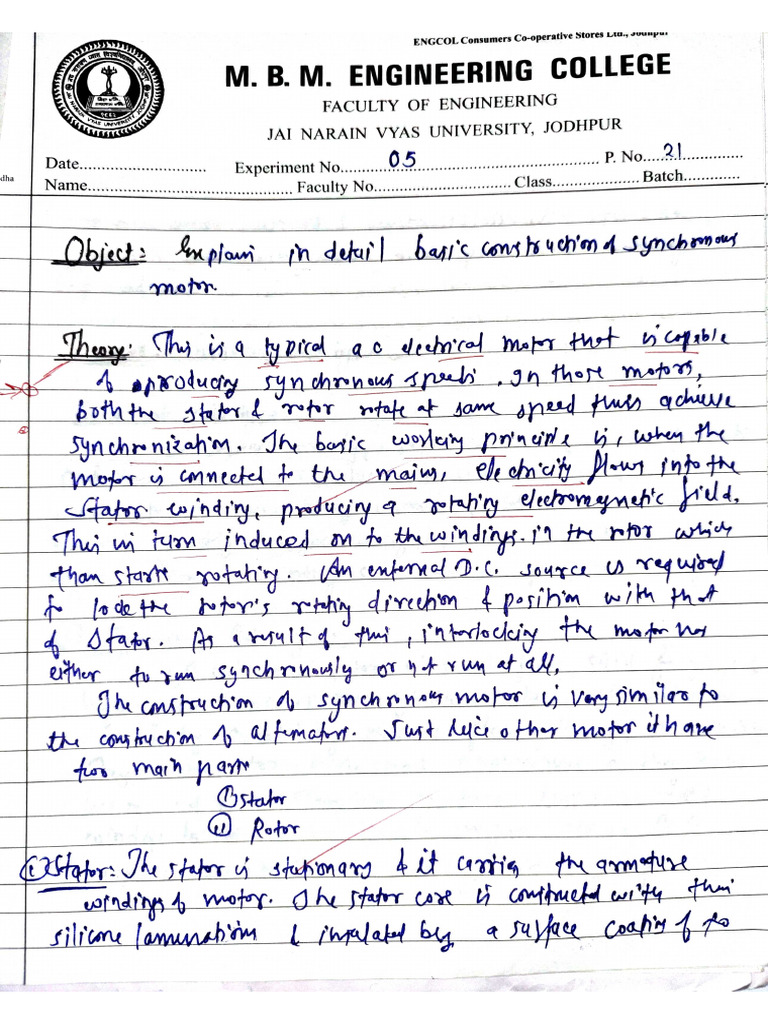 ENGCOL Consumers Co-operative Stores Ltd., Jodhpur
M. B. M. ENGINEERING COLLEGE
FACULTY OF ENGINEERING
JAI NARAIN VYAS UNIVERSITY, JODHPUR
Date............................ Experiment No. 05 P. No. 21
Name............................ Faculty No............................ Class.................... Batch.............
dha
Object: Explain in detail basic construction of synchronous
motor.
Theory: This is a typical a c electrical motor that is capable
of producing synchronous speeds. In those motors,
both the stator & rotor rotate at same speed thus achieve
synchronization. The basic working principle is, when the
motor is connected to the mains, electricity flows into the
stator winding, producing a rotating electromagnetic field.
This in turn induced on to the windings in the rotor which
than starts rotating. An external D.C. source is required
to lock the rotor's rotating direction & position with that
of stator. As a result of this, interlocking the motor has
either to run synchronously or not run at all,
The construction of synchronous motor is very similar to
the construction of alternators. Just like other motor it have
two main parts
(i) Stator
(ii) Rotor
(i) Stator: The stator is stationary & it carries the armature
windings of motor. The stator core is constructed with thin
silicone laminations & insulated by a surface coating of to